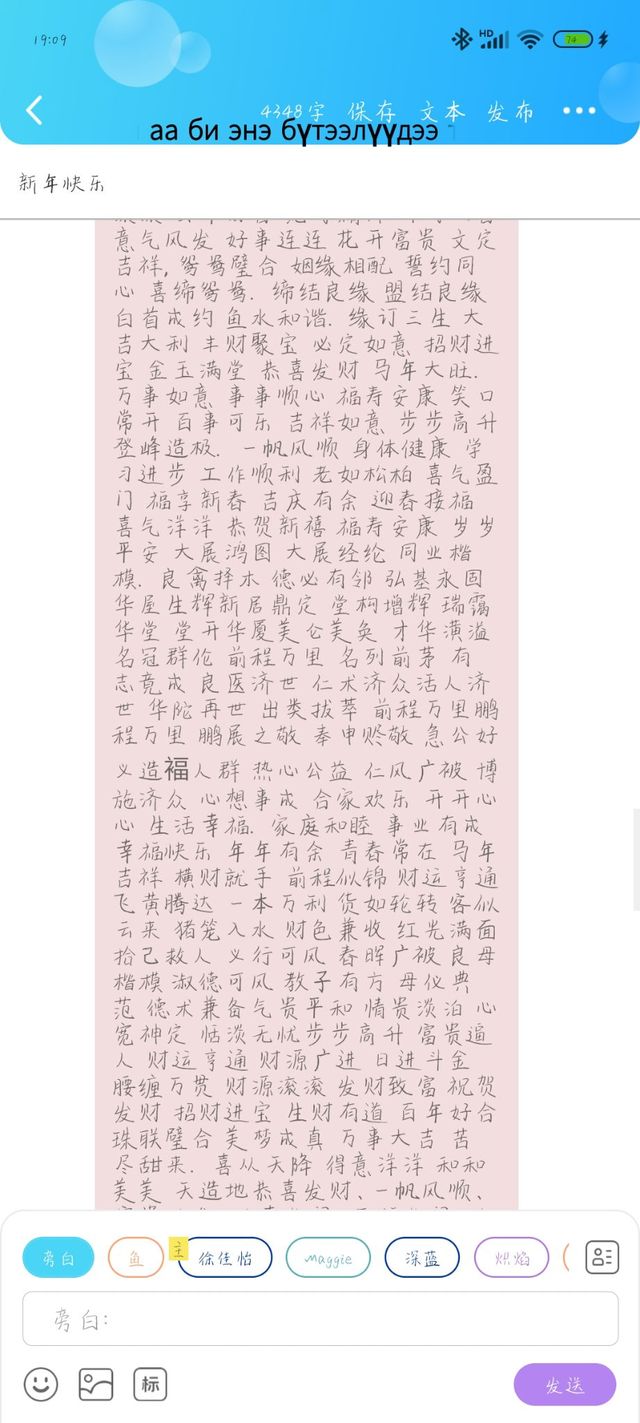 19:09
HD
74
4348字 保存 文本 发布
аа би энэ бүтээлүүдээ
新年快乐
意气风发 好事连连 花开富贵 文定
吉祥, 鸳鸯璧合 姻缘相配 誓约同
心 喜缔鸳鸯. 缔结良缘 盟结良缘
白首成约 鱼水和谐. 缘订三生 大
吉大利 丰财聚宝 必定如意 招财进
宝 金玉满堂 恭喜发财 马年大旺.
万事如意 事事顺心 福寿安康 笑口
常开 百事可乐 吉祥如意 步步高升
登峰造极. 一帆风顺 身体健康 学
习进步 工作顺利 老如松柏 喜气盈
门 福享新春 吉庆有余 迎春接福
喜气洋洋 恭贺新禧 福寿安康 岁岁
平安 大展鸿图 大展经纶 同业楷
模. 良禽择木 德必有邻 弘基永固
华屋生辉新居鼎定 堂构增辉 瑞霭
华堂 堂开华厦美仑美奂 才华潢溢
名冠群伦 前程万里 名列前茅 有
志竟成 良医济世 仁术济众活人济
世 华陀再世 出类拔萃 前程万里鹏
程万里 鹏展之敬 奉申贬敬 急公好
义造福人群 热心公益 仁风广被 博
施济众 心想事成 合家欢乐 开开心
心 生活幸福. 家庭和睦 事业有成
幸福快乐 年年有余 青春常在 马年
吉祥 横财就手 前程似锦 财运亨通
飞黄腾达 一本万利 货如轮转 客似
云来 猪笼入水 财色兼收 红光满面
拾己救人 义行可风 春晖广被良母
楷模 淑德可风 教子有方 母仪典
范 德术兼备气贵平和 情贵淡泊 心
宽神定 恬淡无忧步步高升 富贵逼
人 财运亨通 财源广进 日进斗金
腰缠万贯 财源滚滚 发财致富 祝贺
发财 招财进宝 生财有道 百年好合
珠联璧合 美梦成真 万事大吉 苦
尽甜来. 喜从天降 得意洋洋 和和
美美 天造地恭喜发财、一帆风顺、
旁白 鱼 主 徐佳怡 Maggie 深蓝 炽焰
旁白:
标 发送